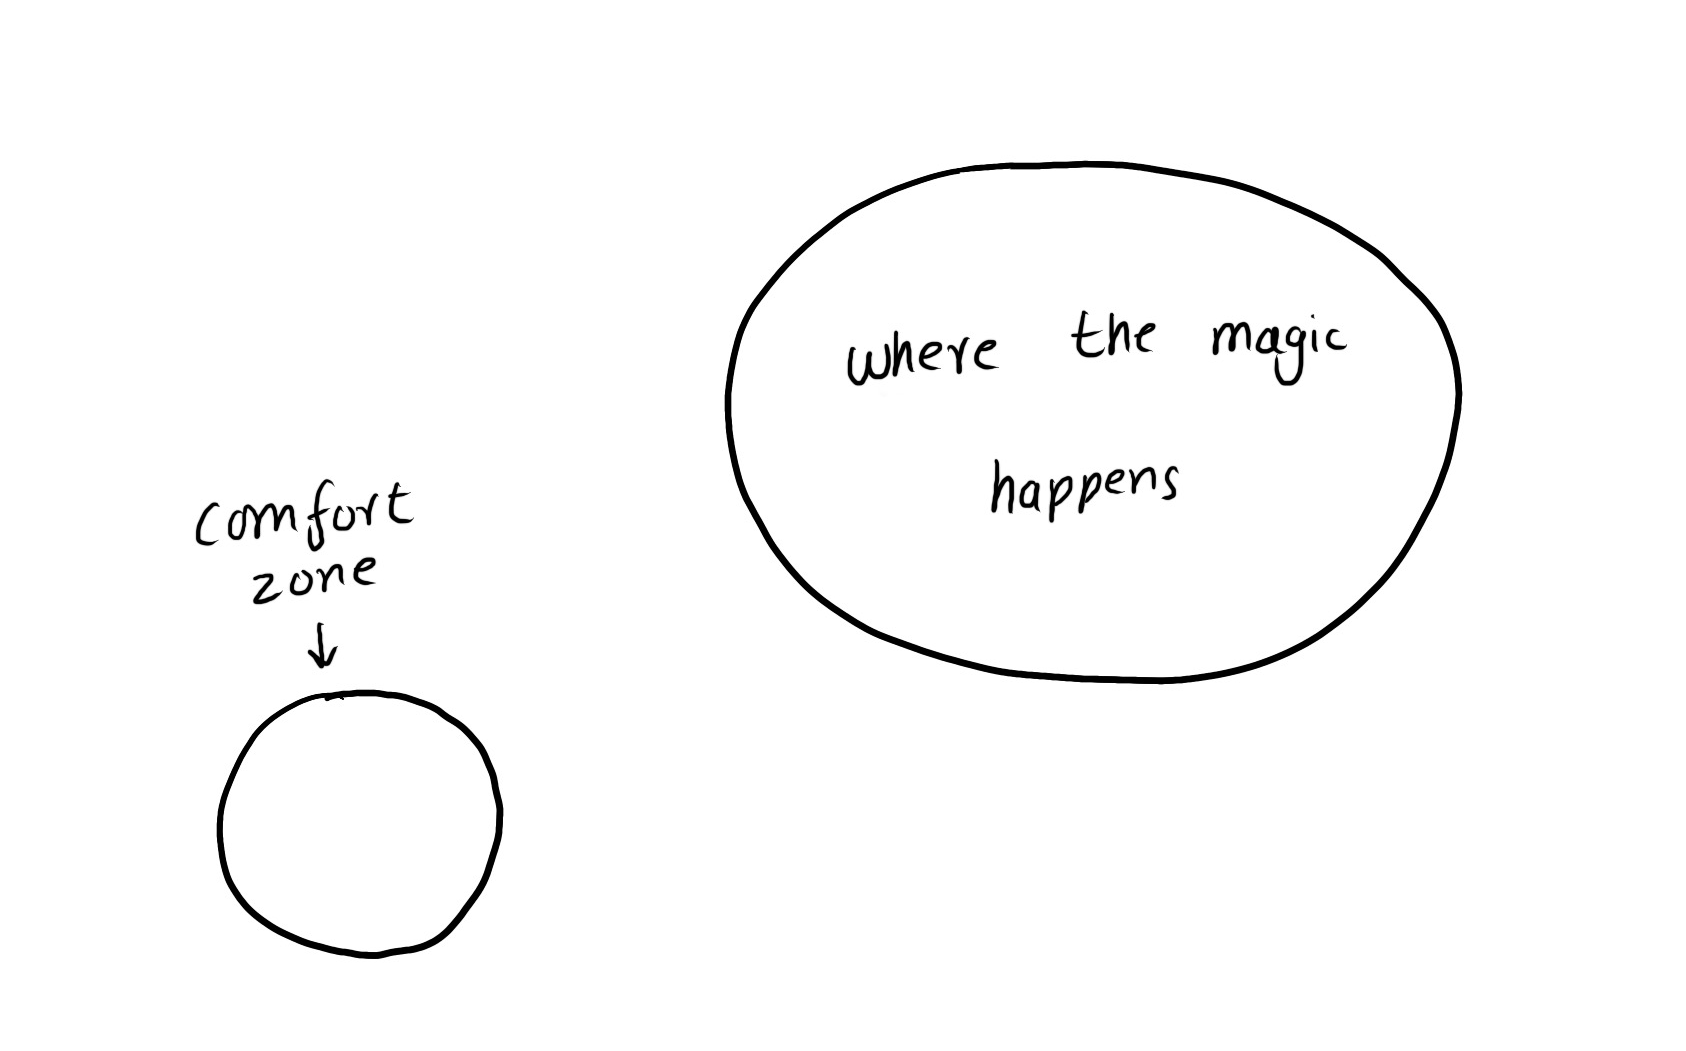 where the magic
happens
comfort
zone